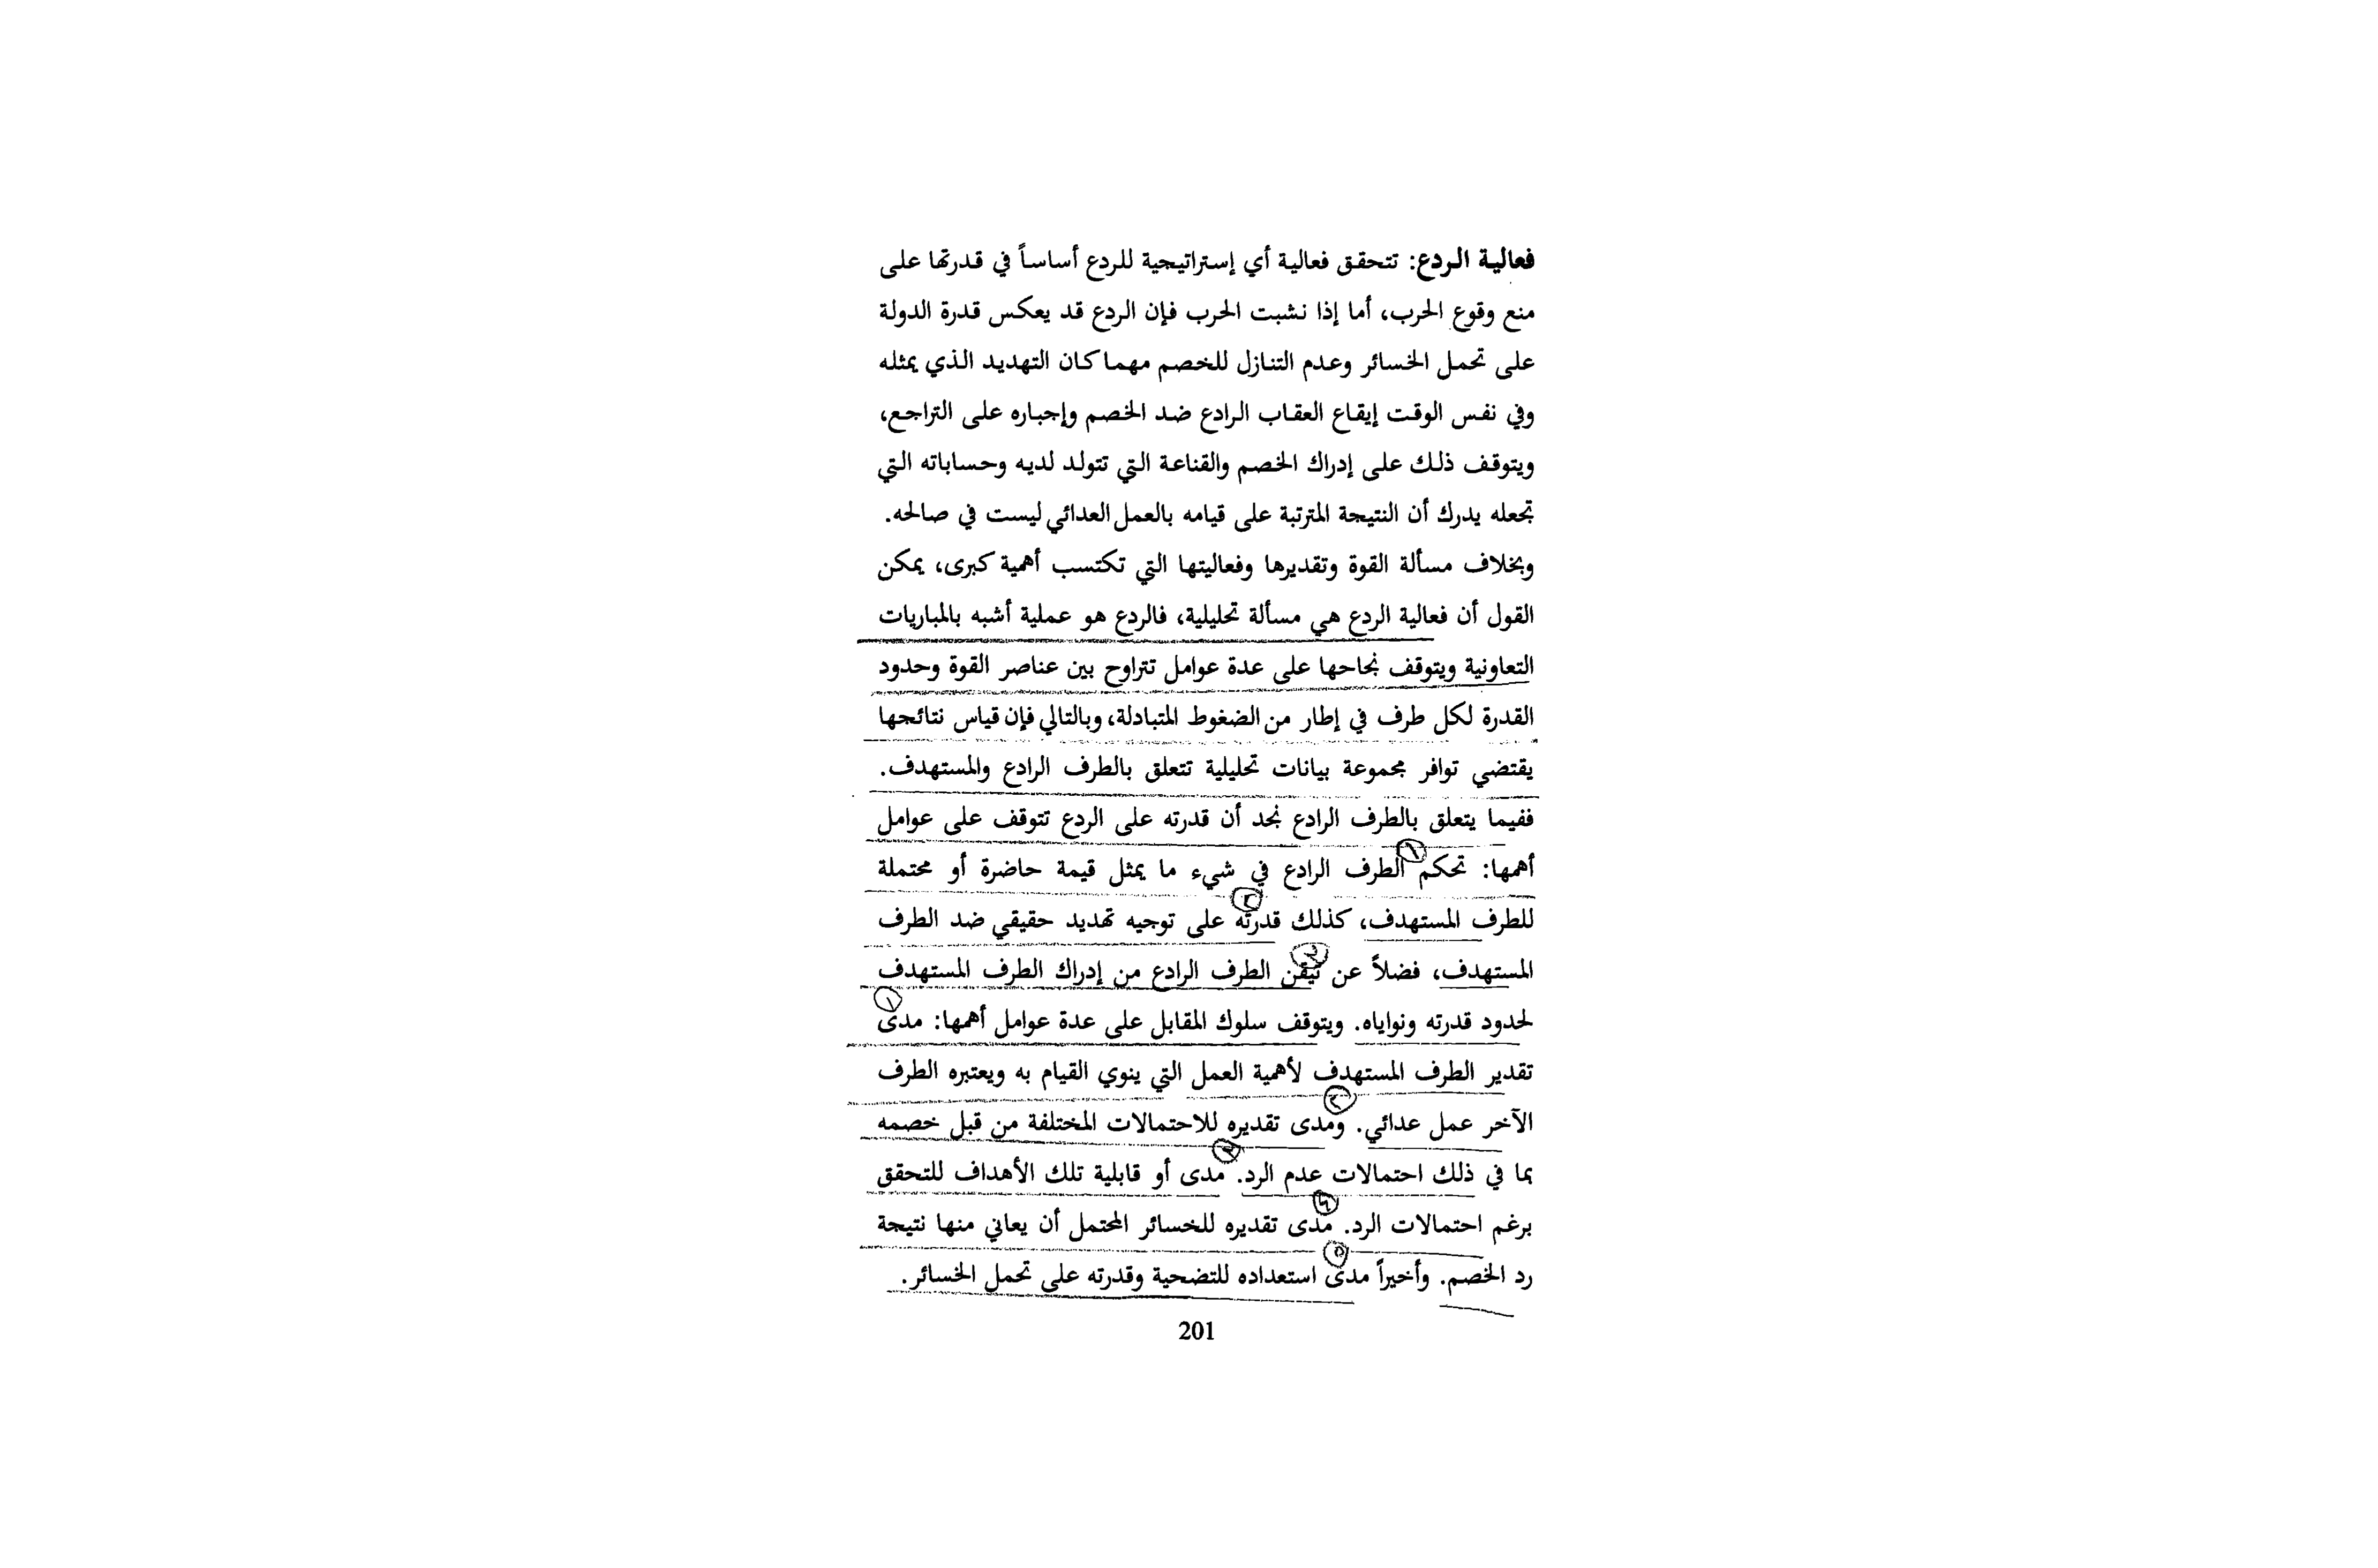 فعالية الردع: تتحقق فعالية أي إستراتيجية للردع أساساً في قدرتها على
منع وقوع الحرب، أما إذا نشبت الحرب فإن الردع قد يعكس قدرة الدولة
على تحمل الخسائر وعدم التنازل للخصم مهما كان التهديد الذي يمثله
وفي نفس الوقت إيقاع العقاب الرادع ضد الخصم وإجباره على التراجع،
ويتوقف ذلك على إدراك الخصم والقناعة التي تتولد لديه وحساباته التي
تجعله يدرك أن النتيجة المترتبة على قيامه بالعمل العدائي ليست في صالحه.
وبخلاف مسألة القوة وتقديرها وفعاليتها التي تكتسب أهمية كبرى، يمكن
القول أن فعالية الردع هي مسألة تحليلية، فالردع هو عملية أشبه بالمباريات
التعاونية ويتوقف نجاحها على عدة عوامل تتراوح بين عناصر القوة وحدود
القدرة لكل طرف في إطار من الضغوط المتبادلة، وبالتالي فإن قياس نتائجها
يقتضي توافر مجموعة بيانات تحليلية تتعلق بالطرف الرادع والمستهدف.
ففيما يتعلق بالطرف الرادع نجد أن قدرته على الردع تتوقف على عوامل
١
أهمها: تحكم الطرف الرادع في شيء ما يمثل قيمة حاضرة أو محتملة
٢
للطرف المستهدف، كذلك قدرته على توجيه تهديد حقيقي ضد الطرف
٣
المستهدف، فضلاً عن تيقن الطرف الرادع من إدراك الطرف المستهدف
١
لحدود قدرته ونواياه. ويتوقف سلوك المقابل على عدة عوامل أهمها: مدى
تقدير الطرف المستهدف لأهمية العمل التي ينوي القيام به ويعتبره الطرف
٢
الآخر عمل عدائي. ومدى تقديره للاحتمالات المختلفة من قبل خصمه
٣
بما في ذلك احتمالات عدم الرد. مدى أو قابلية تلك الأهداف للتحقق
٤
برغم احتمالات الرد. مدى تقديره للخسائر المحتمل أن يعاني منها نتيجة
٥
رد الخصم. وأخيراً مدى استعداده للتضحية وقدرته على تحمل الخسائر.
201